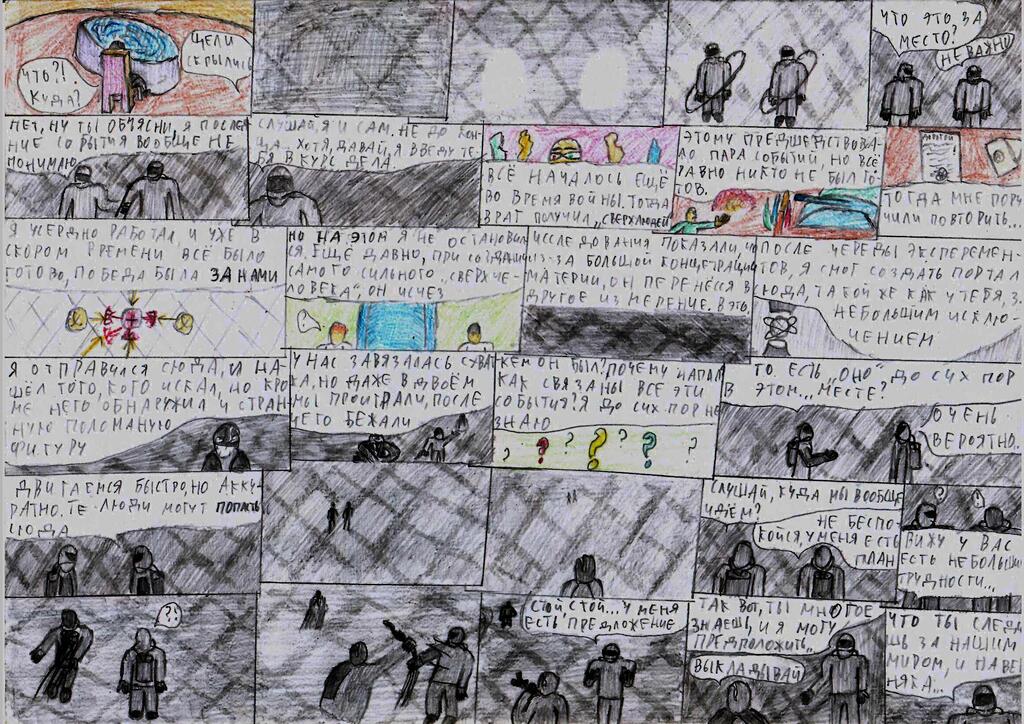 ЧТО?!
КУДА?
ЦЕЛИ
СКРЫЛИСЬ
ЧТО ЭТО ЗА
МЕСТО?
НЕ ВАЖНО
НЕТ, НУ ТЫ ОБЪЯСНИ, Я ПОСЛЕД-
НИЕ СОБЫТИЯ ВООБЩЕ НЕ
ПОНИМАЮ
СЛУШАЙ, Я И САМ, НЕ ДО КОН-
ЦА... ХОТЯ, ДАВАЙ, Я ВВЕДУ ТЕ-
БЯ В КУРС ДЕЛА
ВСЁ НАЧАЛОСЬ ЕЩЁ
ВО ВРЕМЯ ВОЙНЫ. ТОГДА
ВРАГ ПОЛУЧИЛ „СВЕРХЛЮДЕЙ
ЭТОМУ ПРЕДШЕДСТВОВА-
ЛО ПАРА СОБЫТИЙ, НО ВСЁ
РАВНО НИКТО НЕ БЫЛ ГО-
ТОВ.
ТОГДА МНЕ ПОРУ-
ЧИЛИ ПОВТОРИТЬ...
Я УСЕРДНО РАБОТАЛ, И УЖЕ В
СКОРОМ ВРЕМЕНИ ВСЁ БЫЛО
ГОТОВО, ПОБЕДА БЫЛА ЗА НАМИ
НО НА ЭТОМ Я НЕ ОСТАНОВИЛ-
СЯ. ЕЩЕ ДАВНО, ПРИ СОЗДАНИИ
САМОГО СИЛЬНОГО „СВЕРХЧЕ-
ЛОВЕКА", ОН ИСЧЕЗ
ИССЛЕДОВАНИЯ ПОКАЗАЛИ, ЧТО
ИЗ-ЗА БОЛЬШОЙ КОНЦЕТРАЦИИ
МАТЕРИИ, ОН ПЕРЕНЁССЯ В
ДРУГОЕ ИЗМЕРЕНИЕ. В ЭТО.
ПОСЛЕ ЧЕРЕДЫ ЭКСПЕРЕМЕН-
ТОВ, Я СМОГ СОЗДАТЬ ПОРТАЛ
СЮДА, ТАКОЙ ЖЕ КАК У ТЕБЯ, ЗА
НЕБОЛЬШИМ ИСКЛЮ-
ЧЕНИЕМ
Я ОТПРАВИЛСЯ СЮДА, И НА-
ШЁЛ ТОГО, КОГО ИСКАЛ, НО КРО-
МЕ НЕГО ОБНАРУЖИЛ И СТРАН-
НУЮ ПОЛОМАНУЮ
ФИГУРУ
У НАС ЗАВЯЗАЛАСЬ СХВАТ-
КА, НО ДАЖЕ В ДВОЁМ
МЫ ПРОИГРАЛИ, ПОСЛЕ
ЧЕГО БЕЖАЛИ
КЕМ ОН БЫЛ? ПОЧЕМУ НАПАЛ?
КАК СВЯЗАНЫ ВСЕ ЭТИ
СОБЫТИЯ? Я ДО СИХ ПОР НЕ
ЗНАЮ
? ? ? ? ? ? ?
ТО ЕСТЬ „ОНО" ДО СИХ ПОР
В ЭТОМ... МЕСТЕ?
ОЧЕНЬ
ВЕРОЯТНО.
ДВИГАЕМСЯ БЫСТРО, НО АККУ-
РАТНО. ТЕ ЛЮДИ МОГУТ ПОПАСТЬ
СЮДА
СЛУШАЙ, КУДА МЫ ВООБЩЕ
ИДЁМ?
НЕ БЕСПО-
КОЙСЯ, У МЕНЯ ЕСТЬ
ПЛАН
? !
ВИЖУ У ВАС
ЕСТЬ НЕБОЛЬШИЕ
ТРУДНОСТИ...
?!
СТОЙ СТОЙ... У МЕНЯ
ЕСТЬ ПРЕДЛОЖЕНИЕ
ТАК ВОТ, ТЫ МНОГОЕ
ЗНАЕШЬ, И Я МОГУ
ПРЕДПОЛОЖИТЬ...
ВЫКЛАДЫВАЙ
ЧТО ТЫ СЛЕДИ-
ШЬ ЗА НАШИМ
МИРОМ, И НАВЕР-
НЯКА...